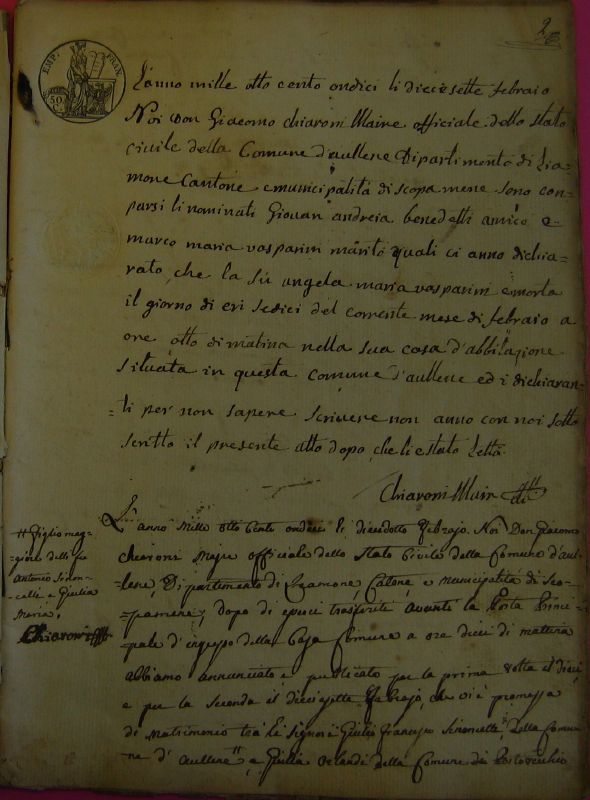 2
EMP. FRAN.
50
L'anno mille otto cento ondici li dieciesette febraio
Noi Don Giacomo Chiaroni Maire officiale dello stato
civile della Comune d'aullene Dipartimento di Lia=
mone Cantone e municipalità di scopamene sono com=
parsi li nominati Giovan andreia benedetti amico e
marco maria vasparini marito quali ci anno dichia=
rato, che la sù angela maria vasparini e morta
il giorno di eri sedici del corrente mese di febraio a
ore otto di matina nella sua casa d'abbitazione
situata in questa comune d'aullene ed i dichiaran=
=ti per non sapere scrivere non anno con noi sotto
scritto il presente atto dopo, che li e stato letto.
Chiaroni Mair
L'anno mille otto cento ondici li diecedotto Febrajo. Noi Don Giacomo
chiaroni Majre officiale dello Stato Civile della Comune d'aul=
lene, Dipartimento di Liamone, Cantone, e municipalità di Sco=
=pamene, dopo di esserci trasferiti avanti la Porta Princi=
pale d'ingresso della Casa Comune a ore dieci di mattina
abbiamo annunciato e publicato per la prima volta il dieci
e per la seconda il dieciesette Febrajo, che vi è promessa
di matrimonio trà li Signori Giulio Francesco Simoncelli, della Comu=
ne d'Aullene" e Giulia Orlandi della Comune di Portovecchio
" figlio mag=
=giore delli fu
Antonio Simon=
celli e Giulia
Maria.
Chiaroni